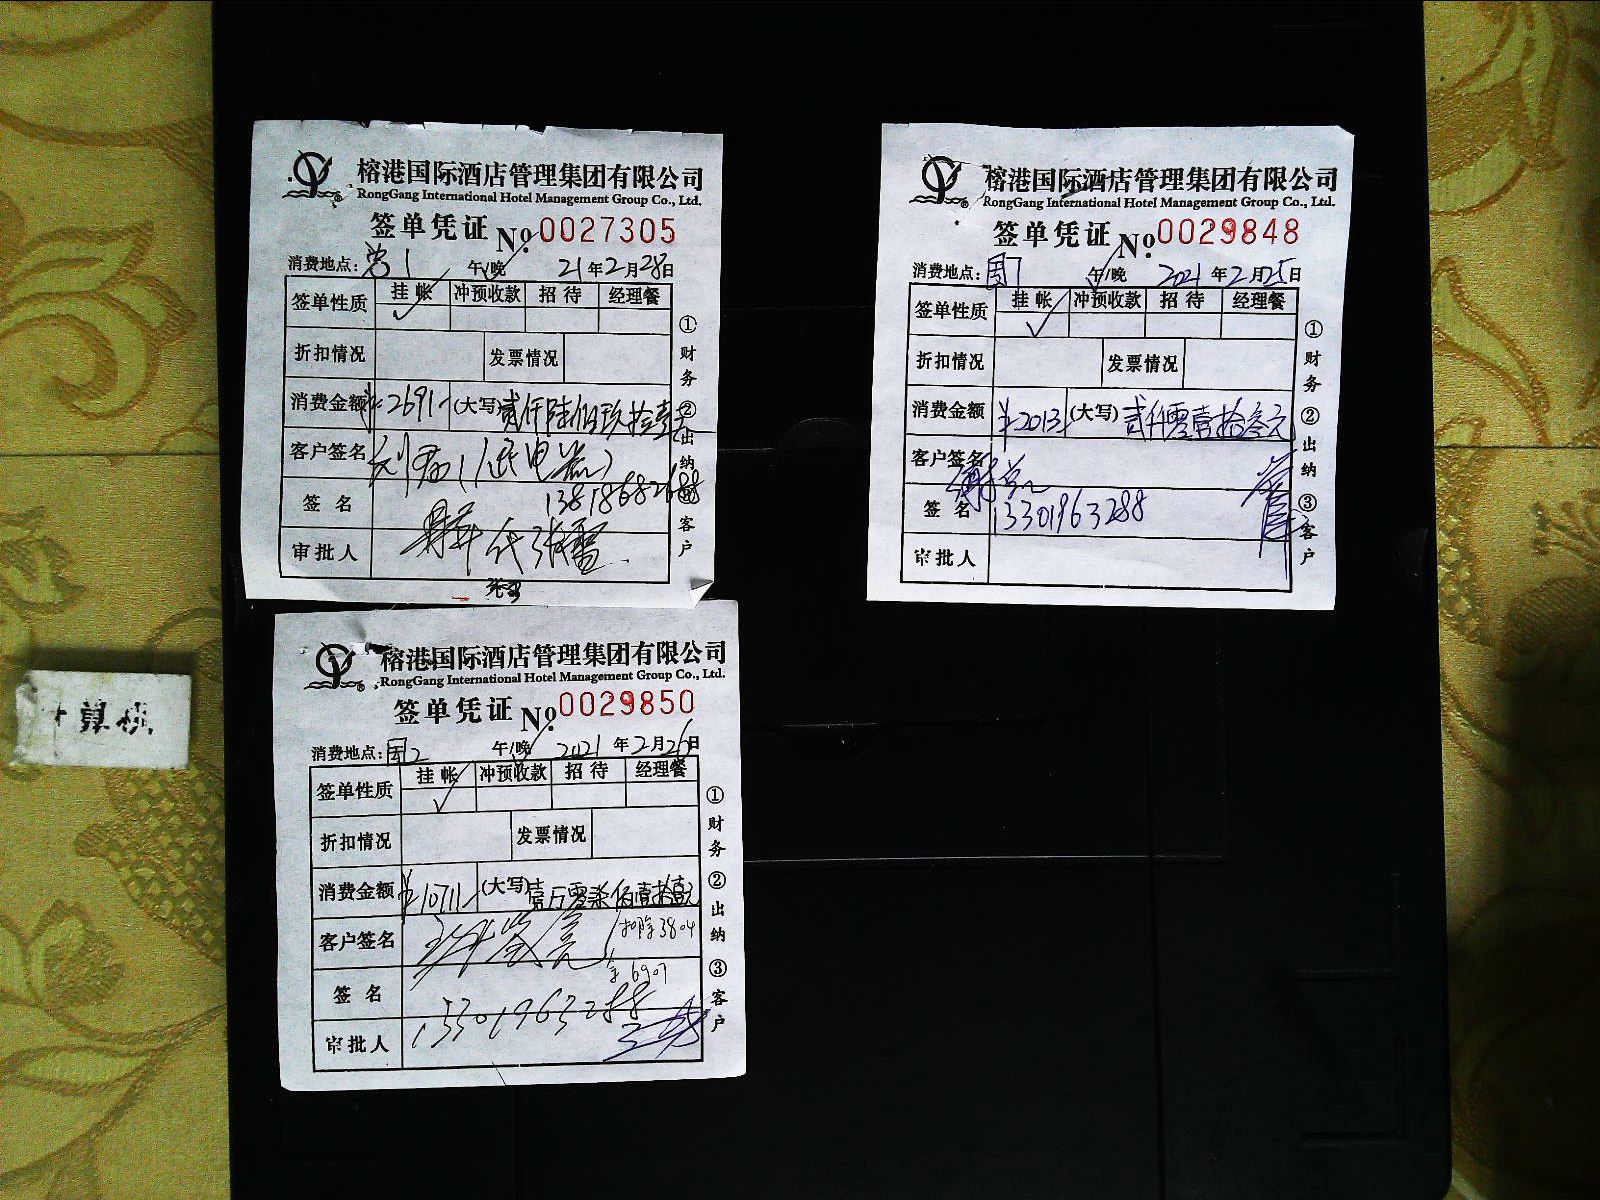 榕港国际酒店管理集团有限公司
RongGang International Hotel Management Group Co., Ltd.
签单凭证 No. 0027305
消费地点: 1 午/晚 21年2月28日
签单性质 挂帐 冲预收款 招待 经理餐
✓
折扣情况 发票情况
消费金额 ¥2691- (大写) 贰仟陆佰玖拾壹元
客户签名
签名 13818682688
审批人
①财务 ②出纳 ③客户
榕港国际酒店管理集团有限公司
RongGang International Hotel Management Group Co., Ltd.
签单凭证 No. 0029848
消费地点: 国7 午/晚 2021年2月25日
签单性质 挂帐 冲预收款 招待 经理餐
✓
折扣情况 发票情况
消费金额 ¥2013- (大写) 贰仟零壹拾叁元
客户签名
签名 13301963288
审批人
①财务 ②出纳 ③客户
榕港国际酒店管理集团有限公司
RongGang International Hotel Management Group Co., Ltd.
签单凭证 No. 0029850
消费地点: 国2 午/晚 2021年2月26日
签单性质 挂帐 冲预收款 招待 经理餐
✓
折扣情况 发票情况
消费金额 ¥10711- (大写) 壹万零柒佰壹拾壹元
客户签名 扣除3804
余6907
签名 13301963288
审批人
①财务 ②出纳 ③客户